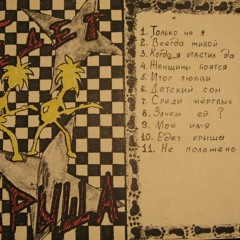 ЕДЕТ
КРЫША
1. Только не я
2. Всегда живой
3. Когда я отлетил да
4. Женщины боятся
5. Итог любви
6. Детский сон
7. Среди мертвых
8. Зачем ей ?
9. Моё имя
10. Едет крыша
11. Не положено